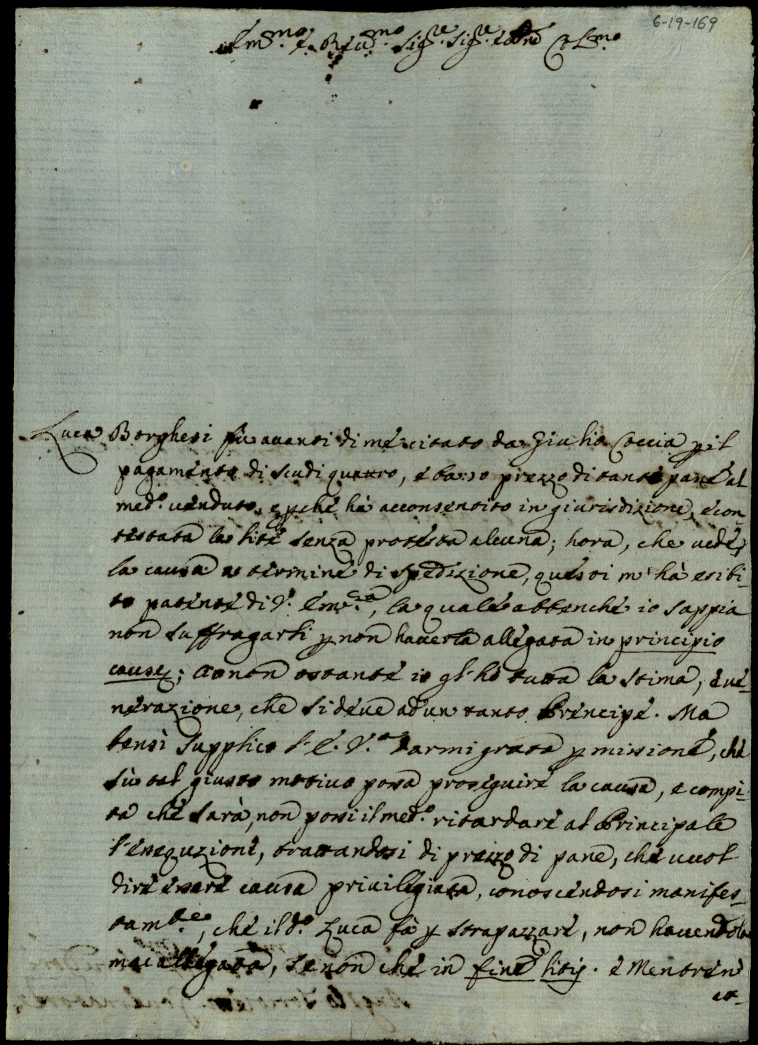 6-19-169
Em.mo e Reu.mo Sig.re Sig.re Pṝne Col.mo
Luca Borghesi fù auanti di mè citato da Giulio Coccia p il
pagamento di scudi quattro, e ba: 10 prezzo di tanto pane al
med.o uenduto, e pche hà acconsentito in giurisdizione, e con-
testata la lite senza protesta alcuna; hora, che uede
la causa a termine di spedizione, questi m'hà esibi-
to patente di V. Em.za, la quale abbenche io sappia
non suffragarli p non hauerla allegata in principio
causę; non ostante io gl'hò tutta la stima, e ue-
nerazione, che si deue ad un tanto Prencipe. Ma
bensì supplico l'E. V.a darmi grata pmissione, che
sù tal giusto motiuo possa proseguire la causa, e compi-
ta che sarà, non possi il med.o ritardare al Principale
l'eseguzione, trattandosi di prezzo di pane, che uuol
dire essere causa priuilegiata, conoscendosi manifes-
tam.te, che il d.o Luca fà p strapazzare, non hauendola
mai allegata, se non che in fine litis. e Mentre